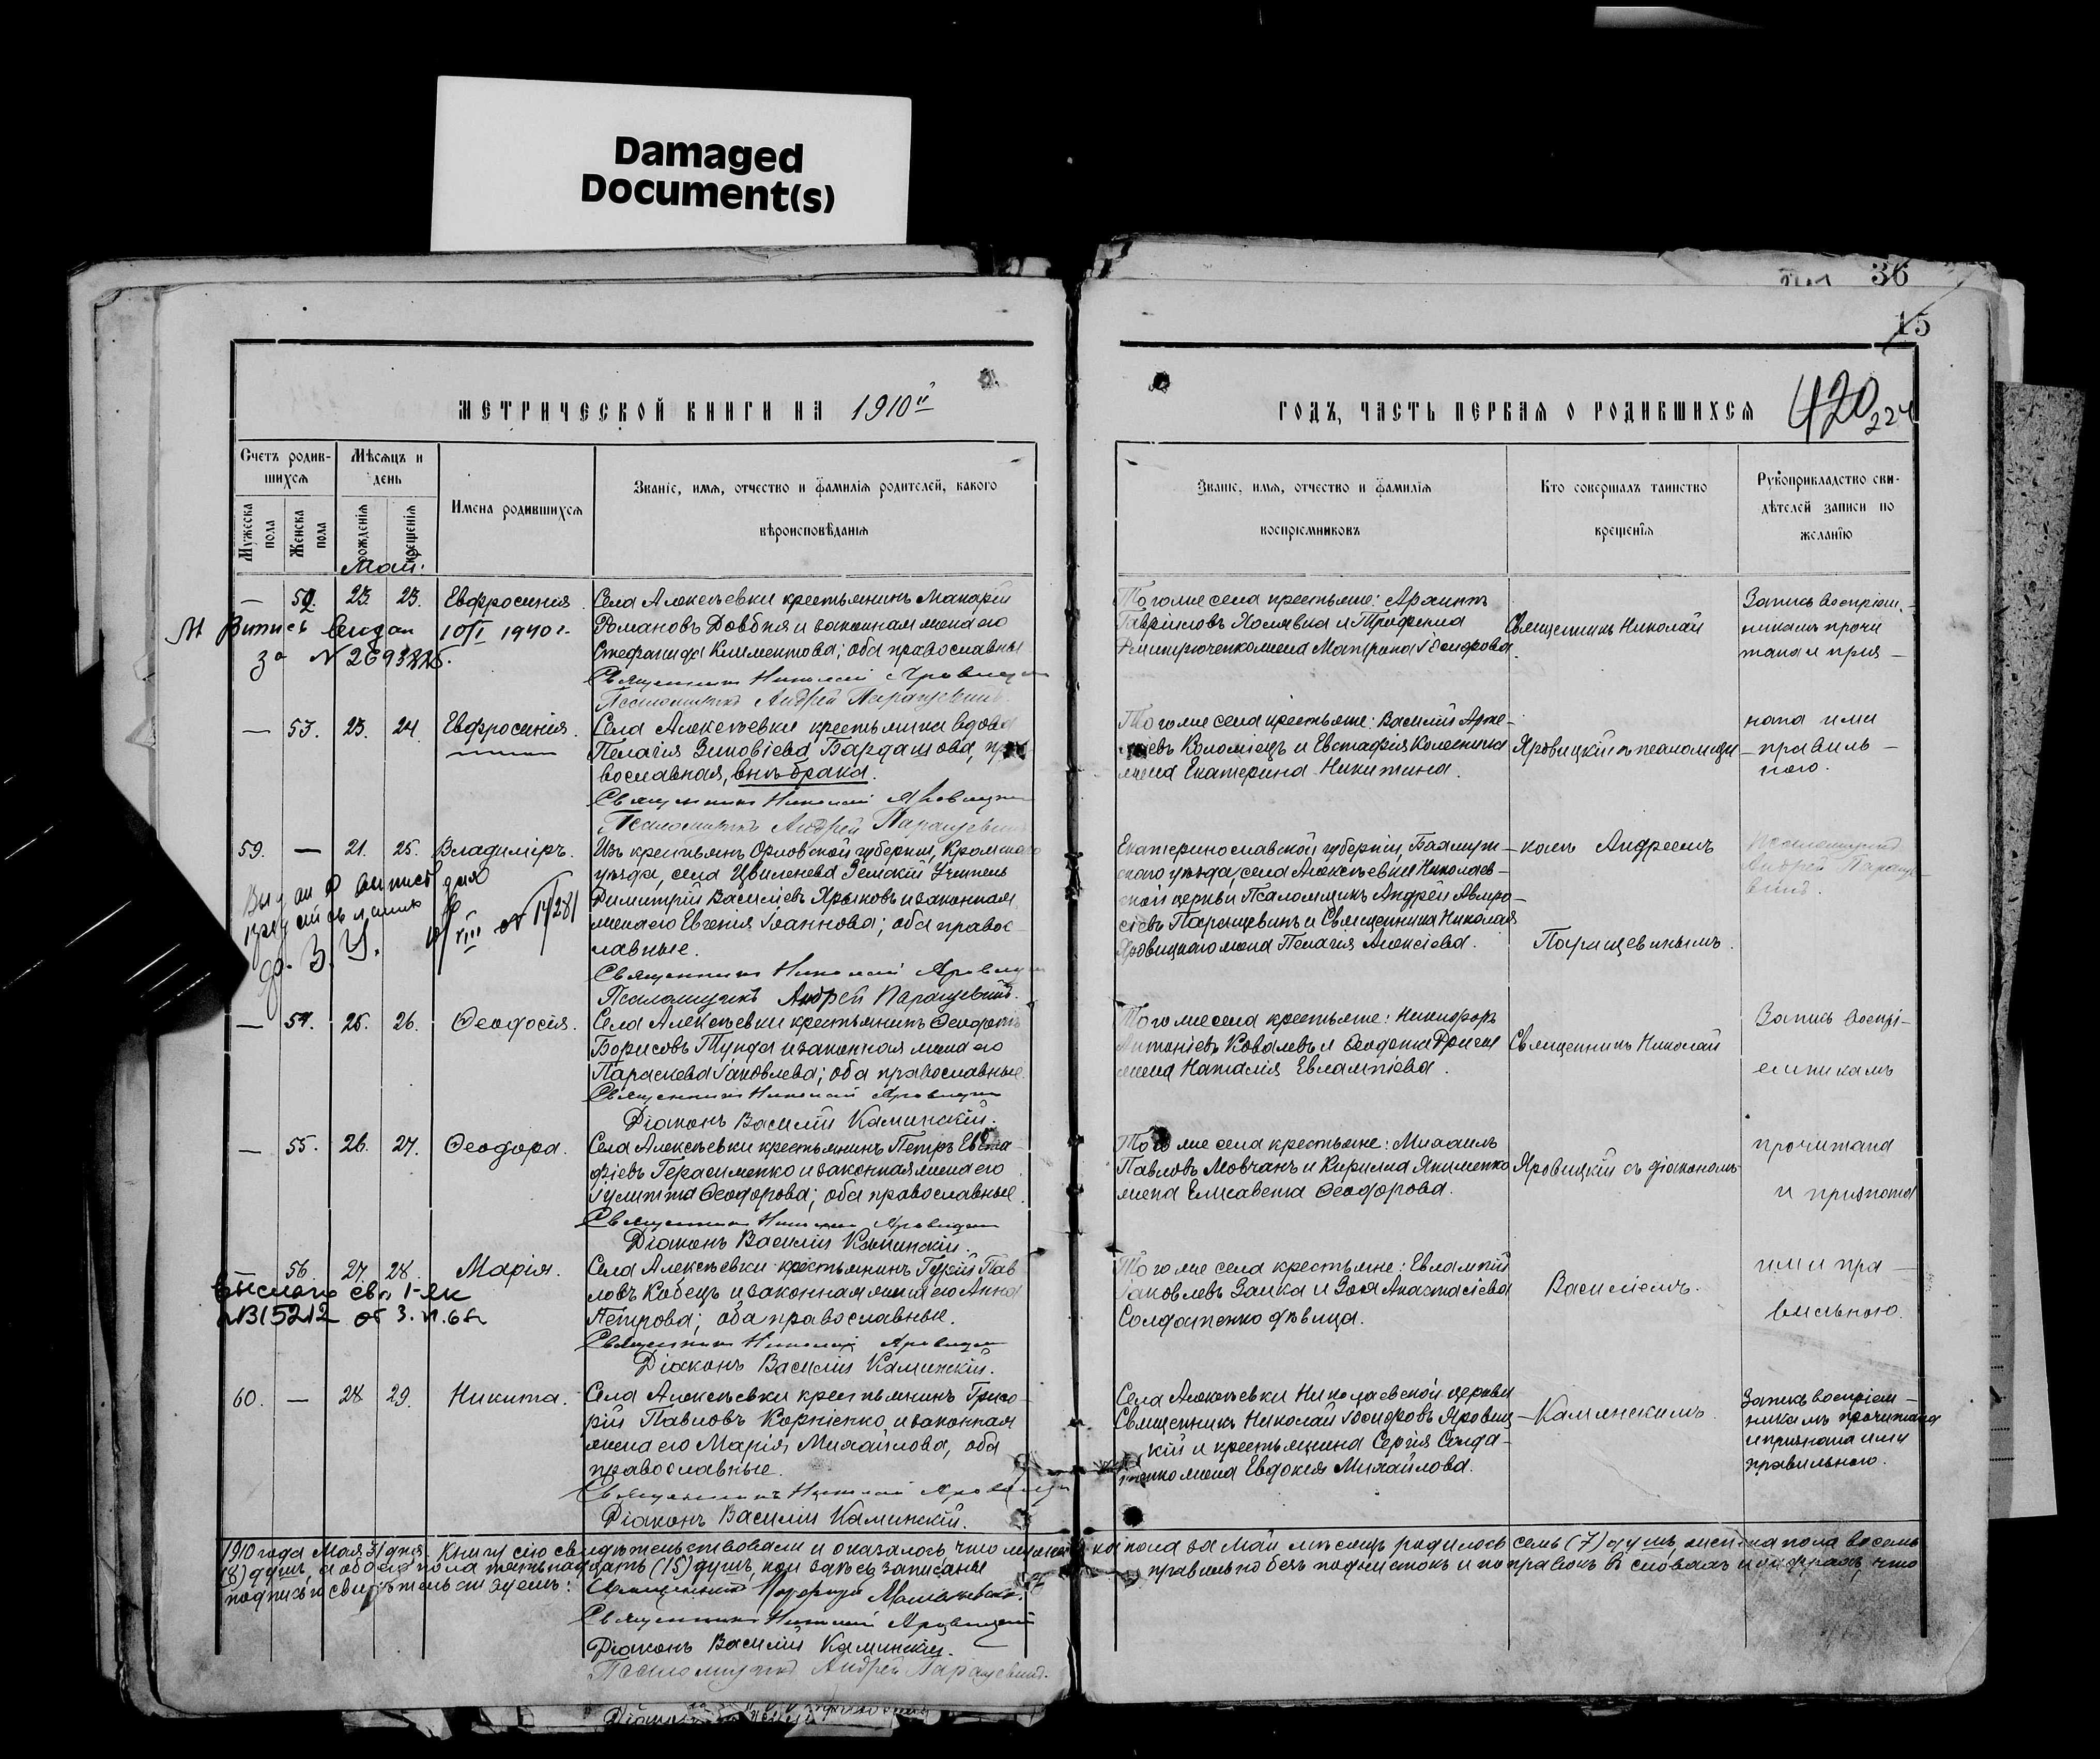 Damaged
Document(s)
36
15
МЕТРИЧЕСКОЙ КНИГИ НА 1910й
ГОДЪ, ЧАСТЬ ПЕРВАЯ О РОДИВШИХСЯ
420
224
Счетъ родив-
шихся
Мѣсяцъ и
день
Имена родившихся
Званіе, имя, отчество и фамилія родителей, какого
вѣроисповѣданія
Мужеска
пола
Женска
пола
рожденія
крещенія
Званіе, имя, отчество и фамилія
воспріемниковъ
Кто совершалъ таинство
крещенія
Рукоприкладство сви-
дѣтелей записи по
желанію
Май.
— 52. 23. 23. Евфросинія. Села Алексѣевки крестьянинъ Макарій
Романовъ Довбня и законная жена его
Стефанида Климентова; оба православны
Священникъ Николай Яровицкій
Псаломщикъ Андрей Паращевинъ
Витись видан 10/I 1940 г.
за №
Того же села крестьяне:
Гавриловъ Халявка и Трофима
жена Матрона
Священникъ Николай
Запись воспріем-
никамъ прочи
тана и приз-
— 53. 23. 24. Евфросинія. Села Алексѣевки крестьянка вдова
Пелагія Зиновіева Бардашова, пра
вославная, внѣ брака.
Священникъ Николай Яровицкій
Псаломщикъ Андрей Паращевинъ
Того же села крестьяне: Василій Арте-
міевъ Коломіецъ и Евстафія Колесника
жена Екатерина Никитина.
Яровицкій съ псаломщи-
нана ими
правиль-
ною.
59. — 21. 25. Владиміръ. Изъ крестьянъ Орловской губерніи, Кромскаго
уѣзда, села Цвиленева Земскій Учитель
Димитрій Василіевъ Хрыковъ и законная
жена его Евгенія Іоаннова; оба правос-
лавные.
Священникъ Николай Яровицкій
Псаломщикъ Андрей Паращевинъ.
Екатеринославской губерніи, Бахмут-
скаго уѣзда, села Алексѣевки Николаев-
ской церкви Псаломщикъ Андрей Амвро-
сіевъ Паращевинъ и Священника Николая
Яровицкаго жена Пелагія Алексіева.
комъ Андреемъ
Паращевинымъ.
Псаломщикъ
Андрей Параще-
винъ.
— 54. 25. 26. Ѳеодосія. Села Алексѣевки крестьянинъ Ѳеодотъ
Борисовъ Тунда и законная жена его
Параскева Іаковлева; оба православные.
Священникъ Николай Яровицкій
Діаконъ Василій Каминскій.
Того же села крестьяне: Никифоръ
Антоніевъ Ковалевъ и Ѳеодота
жена Наталія Евлампіева.
Священникъ Николай
Запись воспрі-
емникамъ
— 55. 26. 27. Ѳеодора. Села Алексѣевки крестьянинъ Петръ Евста-
фіевъ Герасименко и законная жена его
Іулитта Ѳеодорова; оба православные.
Священникъ Николай Яровицкій
Діаконъ Василій Каминскій.
Того же села крестьяне: Михаилъ
Павловъ Мовчанъ и Кирилла Якименко
жена Елисавета Ѳеодорова.
Яровицкій съ діакономъ
прочитана
и признана
56. 27. 28. Марія. Села Алексѣевки крестьянинъ Гурій Пав
ловъ Кобецъ и законная жена его Анна
Петрова; оба православные.
Священникъ Николай Яровицкій
Діаконъ Василій Каминскій.
Того же села крестьяне: Евлампій
Іаковлевъ Заика и Зоя Анастасіева
Солдатенко дѣвица.
Василіемъ.
ими пра-
вильною.
60. — 28 29. Никита. Села Алексѣевки крестьянинъ Григо-
рій Павловъ Корніенко и законная
жена его Марія Михайлова, оба
православные.
Священникъ Николай Яровицкій
Діаконъ Василій Каминскій.
Села Алексѣевки Николаевской церкви
Священникъ Николай Яровиц-
кій и крестьянина Сергія Солда-
тенко жена Евдокія Михайлова.
Каминскимъ.
Запись воспріем-
никамъ прочитана
и признана ими
правильною.
1910 года Мая 31 дня. Книгу сію свидѣтельствовали и оказалось, что мужеска пола за Май мѣсяцъ родилось семь (7) душъ, женска пола восемь
(8) душъ, а обоего пола пятьнадцать (15) душъ, кои здѣсь записаны правильно безъ подчистокъ и поправокъ въ словахъ и цифрахъ, что
подписью свидѣтельствуемъ: Священникъ
Священникъ Николай Яровицкій
Діаконъ Василій Каминскій.
Псаломщикъ Андрей Паращевинъ.